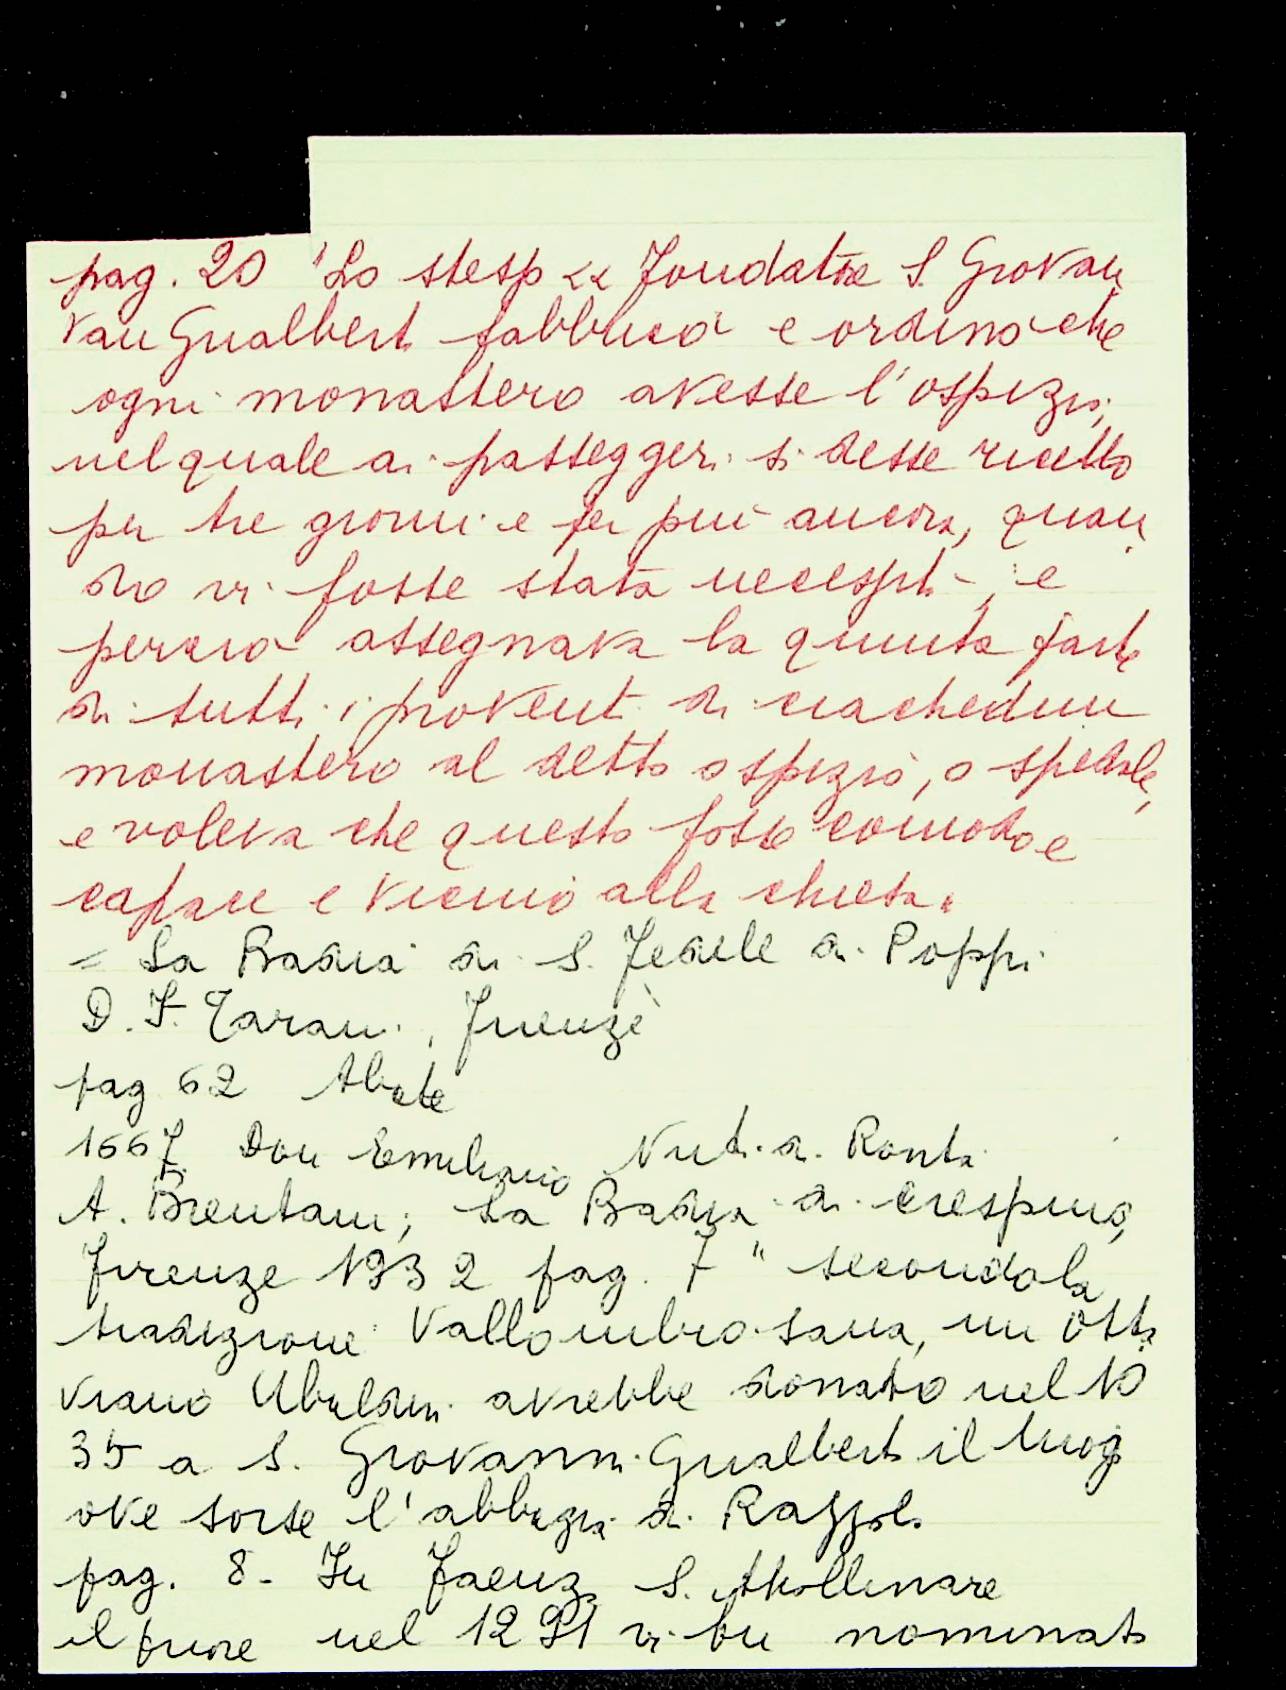 pag. 20 "Lo stesso << fondatore S. Giovan
van Gualberto fabbricò e ordinò che
ogni monastero avesse l'ospizio,
nel quale ai passeggeri si desse ricetto
per tre giorni e per più ancora, quan
do vi fosse stata necessità, e
perciò assegnava la quinta parte
di tutti i proventi di ciaschedun
monastero al detto ospizio, o spedale,
e voleva che questo fosse comodo e
capace e vicino alla chiesa.
= La Badia di S. Fedele di Poppi
D. F. Tarani, Firenze
pag 62 Abate
1667 Don Emiliano Nuti di Ronta
A. Brentani; La Badia di Crespino,
Firenze 1932 pag. 7 " secondo la
tradizione Vallombrosana, un Otta
viano Ubaldini avrebbe donato nel 10
35 a S. Giovanni Gualberto il luogo
ove sorse l'abbazia di Razzolo
pag. 8 - In Faenza S. Apollinare
il priore nel 1291 vi fu nominato